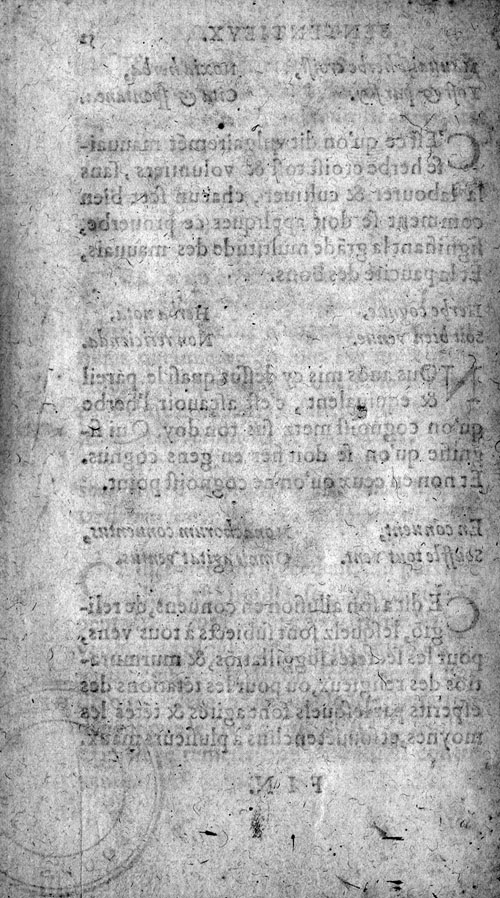 SENTENTIEVX. 51
Mauuaise herbe croist, Noxia herba,
Tost & sur iour. Citò & spontanea.
C'Est ce qu'on dit vulgairemẽt mauuai-
se herbe croist tost & voluntiers, sans
la labourer & cultiuer, chacun sçet bien
comment se doit appliquer ce prouerbe,
signifiant la grãde multitude des mauuais,
Et la paucité des bons.
Herbe cogue, Herba nota,
soit bien venue. Non reiicienda.
NOus auõs mis cy dessus quasi le pareil
& equiualent, c'est asçauoir l'herbe
qu'on cognoist metz sus ton doy. Qui si-
gnifie qu'on se doit fier en gens cognus.
Et non en ceux qu'on ne cognoist point.
En conuent, Monachorum conuentus,
souffle tout vent. Omnis agitat ventus.
CE dit a son allusion en conuens, de reli-
giõ, lesquelz sont subiects à tous vens,
pour les secretes suggillatiõs, & murmura-
tiõs des religieux, ou pour les tẽtations des
esperits par lesquels sont agités & tẽtés les
moynes, et induictz enclins à plusieurs maux.
F I N.